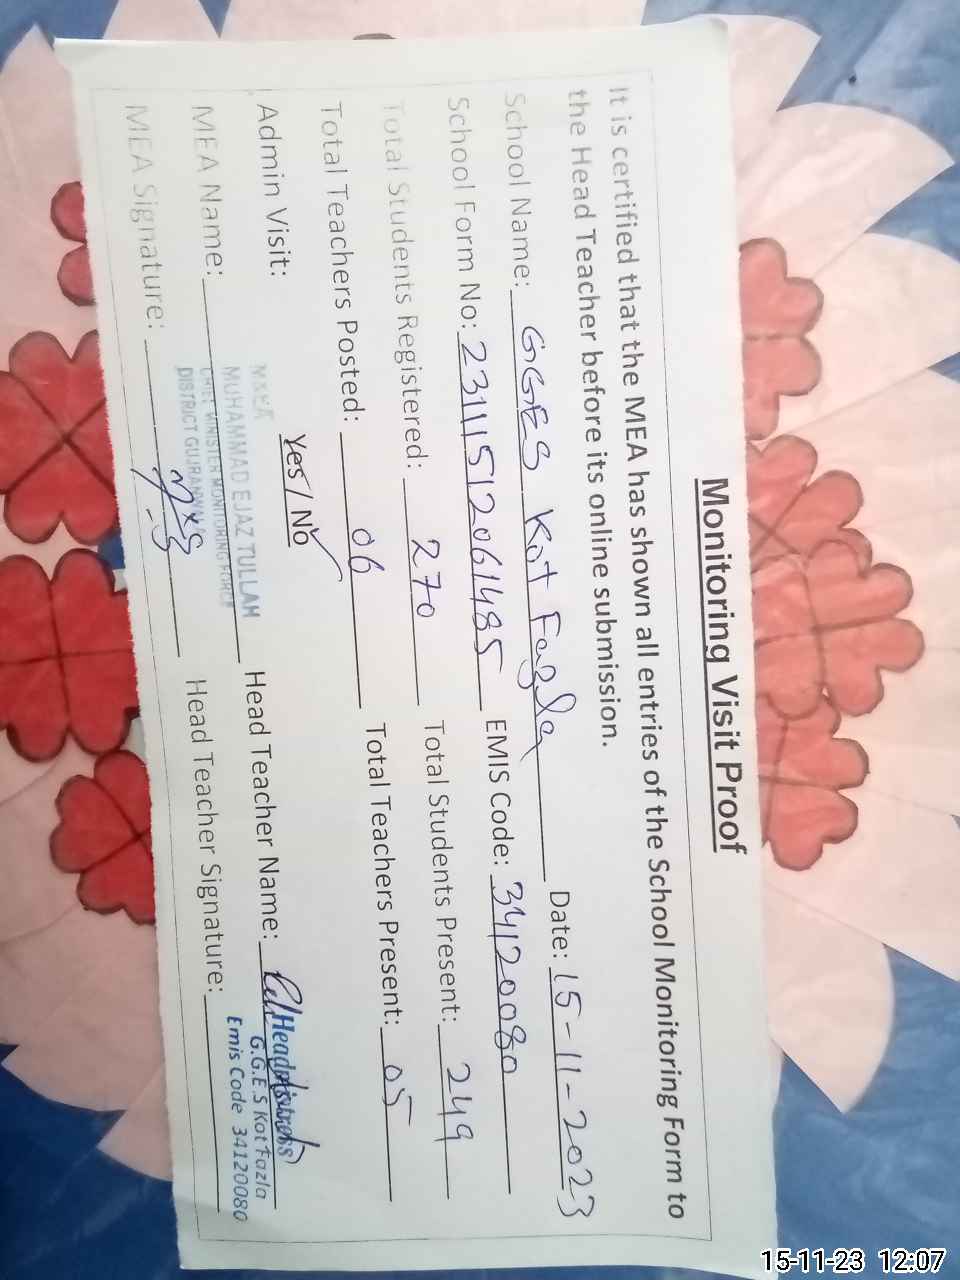 Monitoring Visit Proof
It is certified that the MEA has shown all entries of the School Monitoring Form to
the Head Teacher before its online submission.
School Name: GGES Kot Fazla Date: 15-11-2023
School Form No: 23111512061485 EMIS Code: 34120080
Total Students Registered: 270 Total Students Present: 249
Total Teachers Posted: 06 Total Teachers Present: 05
Admin Visit: Yes / No
M&EA
MEA Name: MUHAMMAD EJAZ TULLAH Head Teacher Name: Headmistress
CHIEF MINISTER MONITORING FORCE G.G.E.S Kot Fazla
DISTRICT GUJRANWALA Emis Code 34120080
MEA Signature: Head Teacher Signature:
15-11-23 12:07